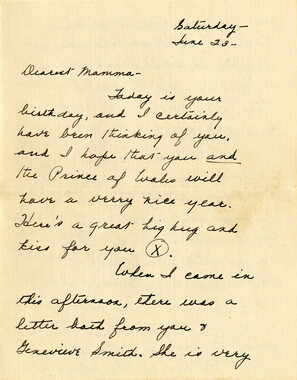 Saturday-
June 23-
Dearest Mamma-
Today is your
birthday, and I certainly
have been thinking of you,
and I hope that you and
the Prince of Wales will
have a verry nice year.
Here's a great big hug and
kiss for you X.
When I came in
this afternoon, there was a
letter both from you &
Genevieve Smith. She is very